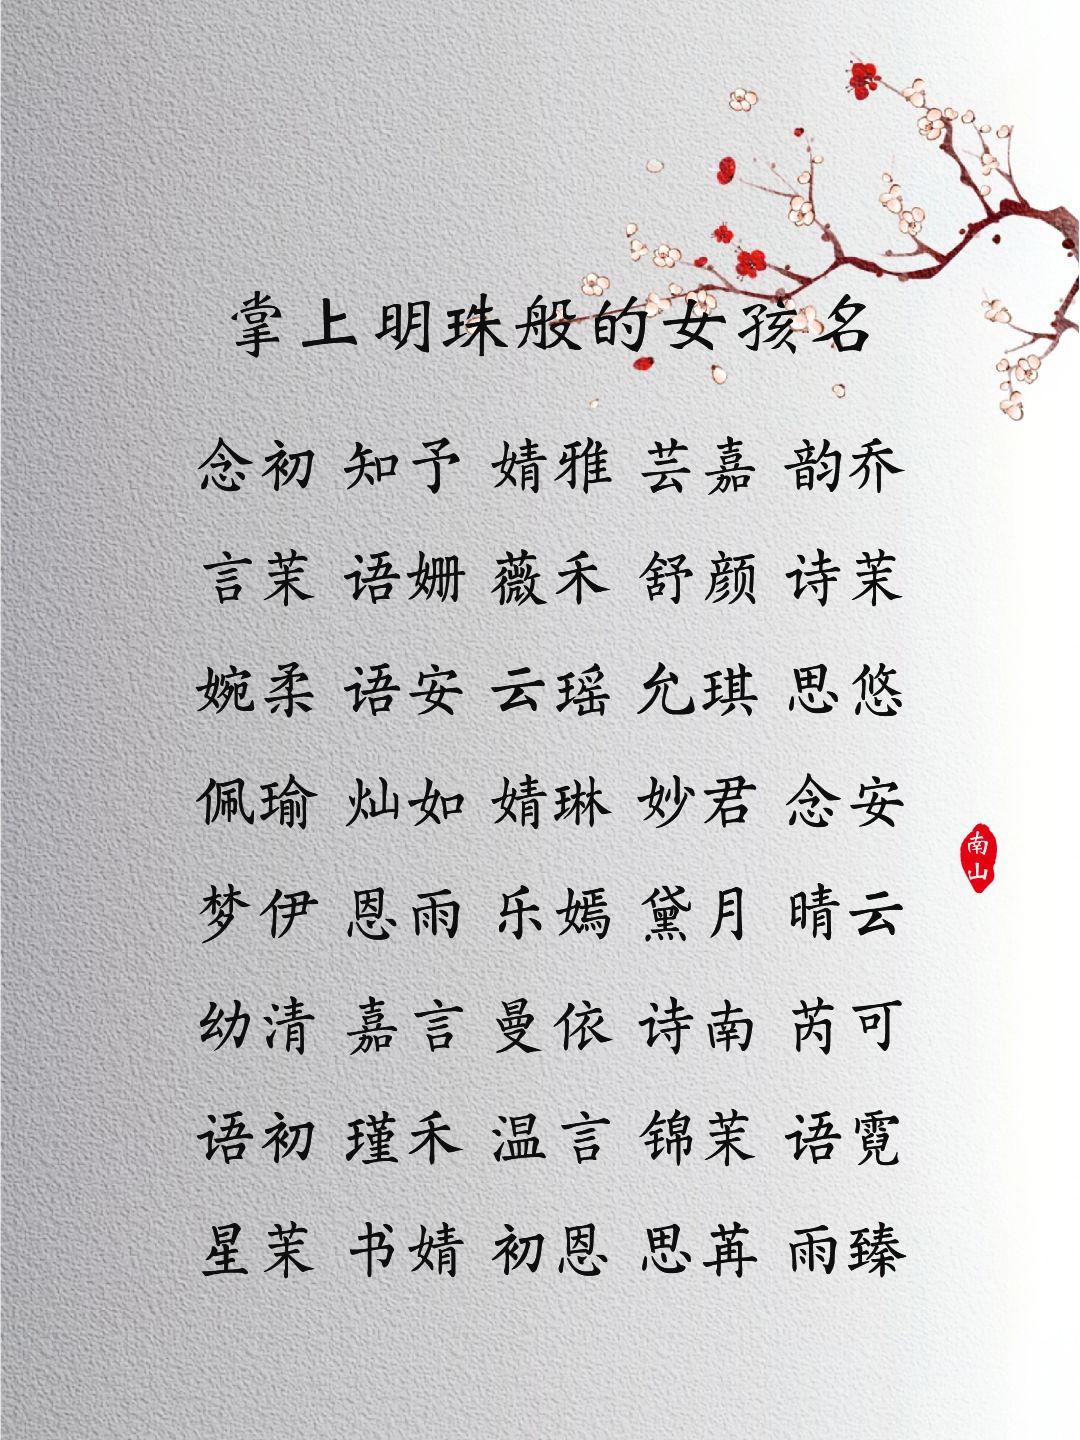 掌上明珠般的女孩名
念初 知予 婧雅 芸嘉 韵乔
言茉 语姗 薇禾 舒颜 诗茉
婉柔 语安 云瑶 允琪 思悠
佩瑜 灿如 婧琳 妙君 念安
南山
梦伊 恩雨 乐嫣 黛月 晴云
幼清 嘉言 曼依 诗南 芮可
语初 瑾禾 温言 锦茉 语霓
星茉 书婧 初恩 思苒 雨臻